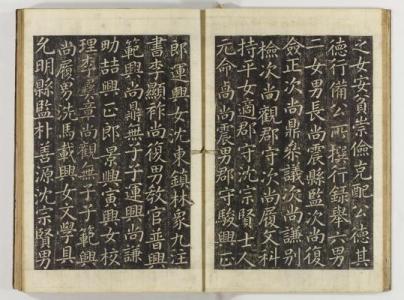 之女安貞崇儉克配公德其
德行備公所撰行録舉六男
二女男長尚震縣監次尚復
僉正次尚鼎叅議次尚謙別
檢次尚觀郡守次尚履文科
持平女適郡守沈宗賢士人
元命卨尚震男郡守駿興正
郎運興女沈東鎮林象九注
書李顯祚尚復男教官普興
範興尚鼎無子子運興尚謙
男
助喆興正郎景興寅興女校
理李
章尚觀無子子範興
尚履男洗馬載興女文學具
允明縣監朴善源沈宗賢男